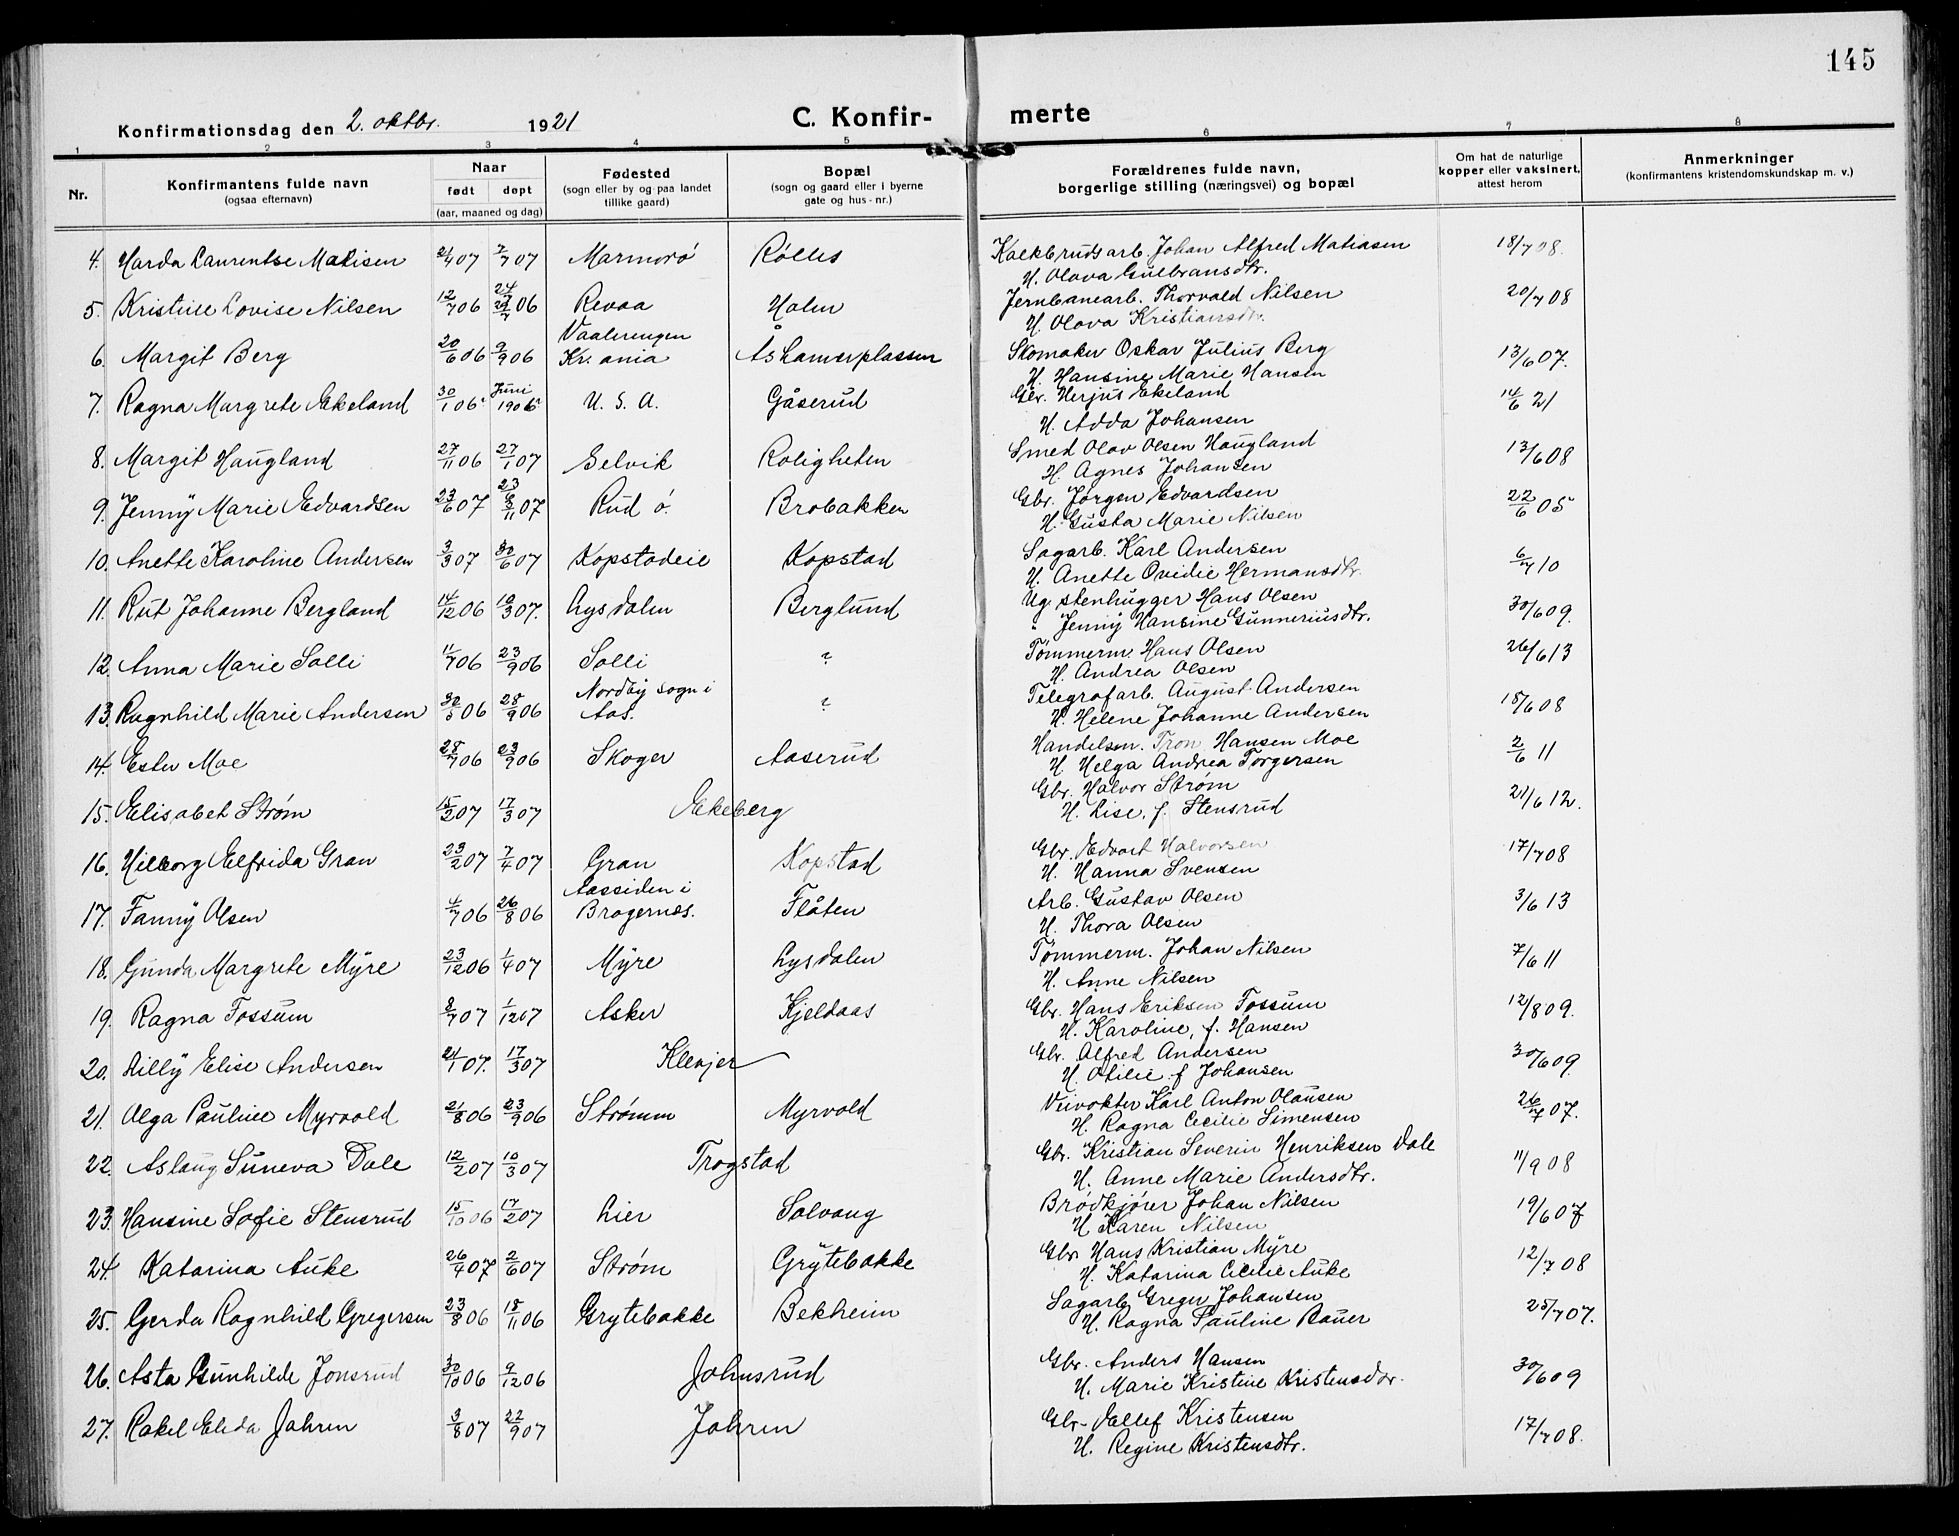 145
Konfirmationsdag den 2. oktbr. 1921
C. Konfir- merte
1 2 3 4 5 6 7 8
Nr. Konfirmantens fulde navn (ogsaa efternavn) Naar født døpt (aar, maaned og dag) Fødested (sogn eller by og paa landet tillike gaard) Bopæl (sogn og gaard eller i byerne gate og hus-nr.) Forældrenes fulde navn, borgerlige stilling (næringsvei) og bopæl Om hat de naturlige kopper eller vaksinert, attest herom Anmerkninger (konfirmantens kristendomskundskap m. v.)
4. Harda Laurentse Matisen 2/4 07 7/7 07 Marmorö Rölles Kalkbrudsarb. Johan Alfred Matiasen 18/7 08.
H. Olava Gulbransdtr.
5. Kristine Lovise Nilsen 12/7 06 06 Revaa Holm Jernbanearb. Thorvald Nilsen 20/7 08
H. Olava Kristiansdtr.
6. Margit Berg 20/6 06 9/9 06 Vaalerengen Kr.ania Åshamerplassen Skomaker Oskar Julius Berg 13/6 07.
H. Hansine Marie Hansen
7. Ragna Margrete Ekeland 30/1 06 Juni 1906 U. S. A. Gåserud Gbr. Herjus Ekeland 14/6 21
H. Adda Johansen
8. Margit Haugland 27/11 06 27/1 07 Selvik Roligheten Smed Olav Olsen Haugland 13/6 08
H. Agnes Johansen
9. Jenny Marie Edvardsen 23/6 07 07 Rud ö. Brobakken Gbr. Jørgen Edvardsen 22/6 05
H. Gusta Marie Nilsen
10. Anette Karoline Andersen 3/3 07 30/6 07 Kopstadeie Kopstad Sagarb. Karl Andersen 6/7 10
H. Anette Ovidie Hermansdtr.
11. Rut Johanne Bergland 14/12 06 10/3 07. Lysdalen Berglund Ug. stenhugger Hans Olsen 30/6 09.
" Jenny Hansine Gunneriusdtr.
12. Anna Marie Solli 11/7 06 23/9 06 Solli ? Tømmerm. Hans Olsen 26/6 13
H. Andrea Olsen
13. Ragnhild Marie Andersen 30/5 06 28/9 06 Nordby sogn i Aas. ? Telegrafarb. August Andersen 18/6 08
H. Helene Johanne Andersen
14. Ester Moe 28/7 06 23/9 06 Skoger Aaserud Handelsm. Tron Hansen Moe 2/6 11
H. Helga Andrea Torgersen
15. Elisabet Strøm 15/2 07 17/3 07 Ekeberg Gbr. Halvor Strøm 21/6 12.
H. Lise, f. Stensrud
16. Hilborg Elfrida Gran 23/2 07 7/4 07 Gran Kopstad Gbr. Edvart Halvorsen 17/7 08
H. Hanna Svensen
17. Fanny Olsen 4/7 06 26/8 06 Aassiden i Bragernæs. Flåten Arb. Gustav Olsen 3/6 13
H. Thora Olsen
18. Gunda Margrete Myre 23/12 06 1/4 07 Myre Lysdalen Tømmerm. Johan Nilsen 7/6 11
H. Anne Nilsen
19. Ragna Fossum 8/7 07 1/12 07 Asker Kjeldaas Gbr. Hans Eriksen Fossum 12/8 09.
H. Karoline, f. Hansen
20. Lilly Elise Andersen 2/1 07. 17/3 07 Klevjer Gbr. Alfred Andersen 30/6 09.
H. Otilie f Johansen
21. Olga Pauline Myrvold 21/8 06 23/9 06 Strømm Myrvold Veivokter Karl Anton Olausen 26/7 07.
H. Ragna Cecilie Simensen
22. Aslaug Suneva Dale 12/2 07 10/3 07 Trogstad Gbr. Kristian Severin Henriksen Dale 11/9 08
H. Anne Marie Andersdtr.
23. Hansine Sofie Stensrud 15/10 06 17/2 07 Lier Solvang Brødkjører Johan Nilsen 19/6 07
H Karen Nilsen
24. Katarina Auke 26/4 07 2/6 07 Strøm Grytebakke Gbr Hans Kristian Myre 12/7 08
H. Katarina Cicilie Auke
25. Gerda Ragnhild Gregersen 23/8 06 18/11 06 Grytebakke Bekheim Sagarb Greger Johansen 25/7 07.
H. Ragna Pauline Bauer
26. Asta Gunhilde Jonsrud 30/10 06 9/12 06 Johnsrud Gbr. Anders Hansen 30/6 09
H. Marie Kristine Kristensdtr.
27. Rakel Elida Jahren 3/8 07 22/9 07 Jahren Gbr- Detlef Kristensen 17/7 08.
H. Regine Kristensdtr.